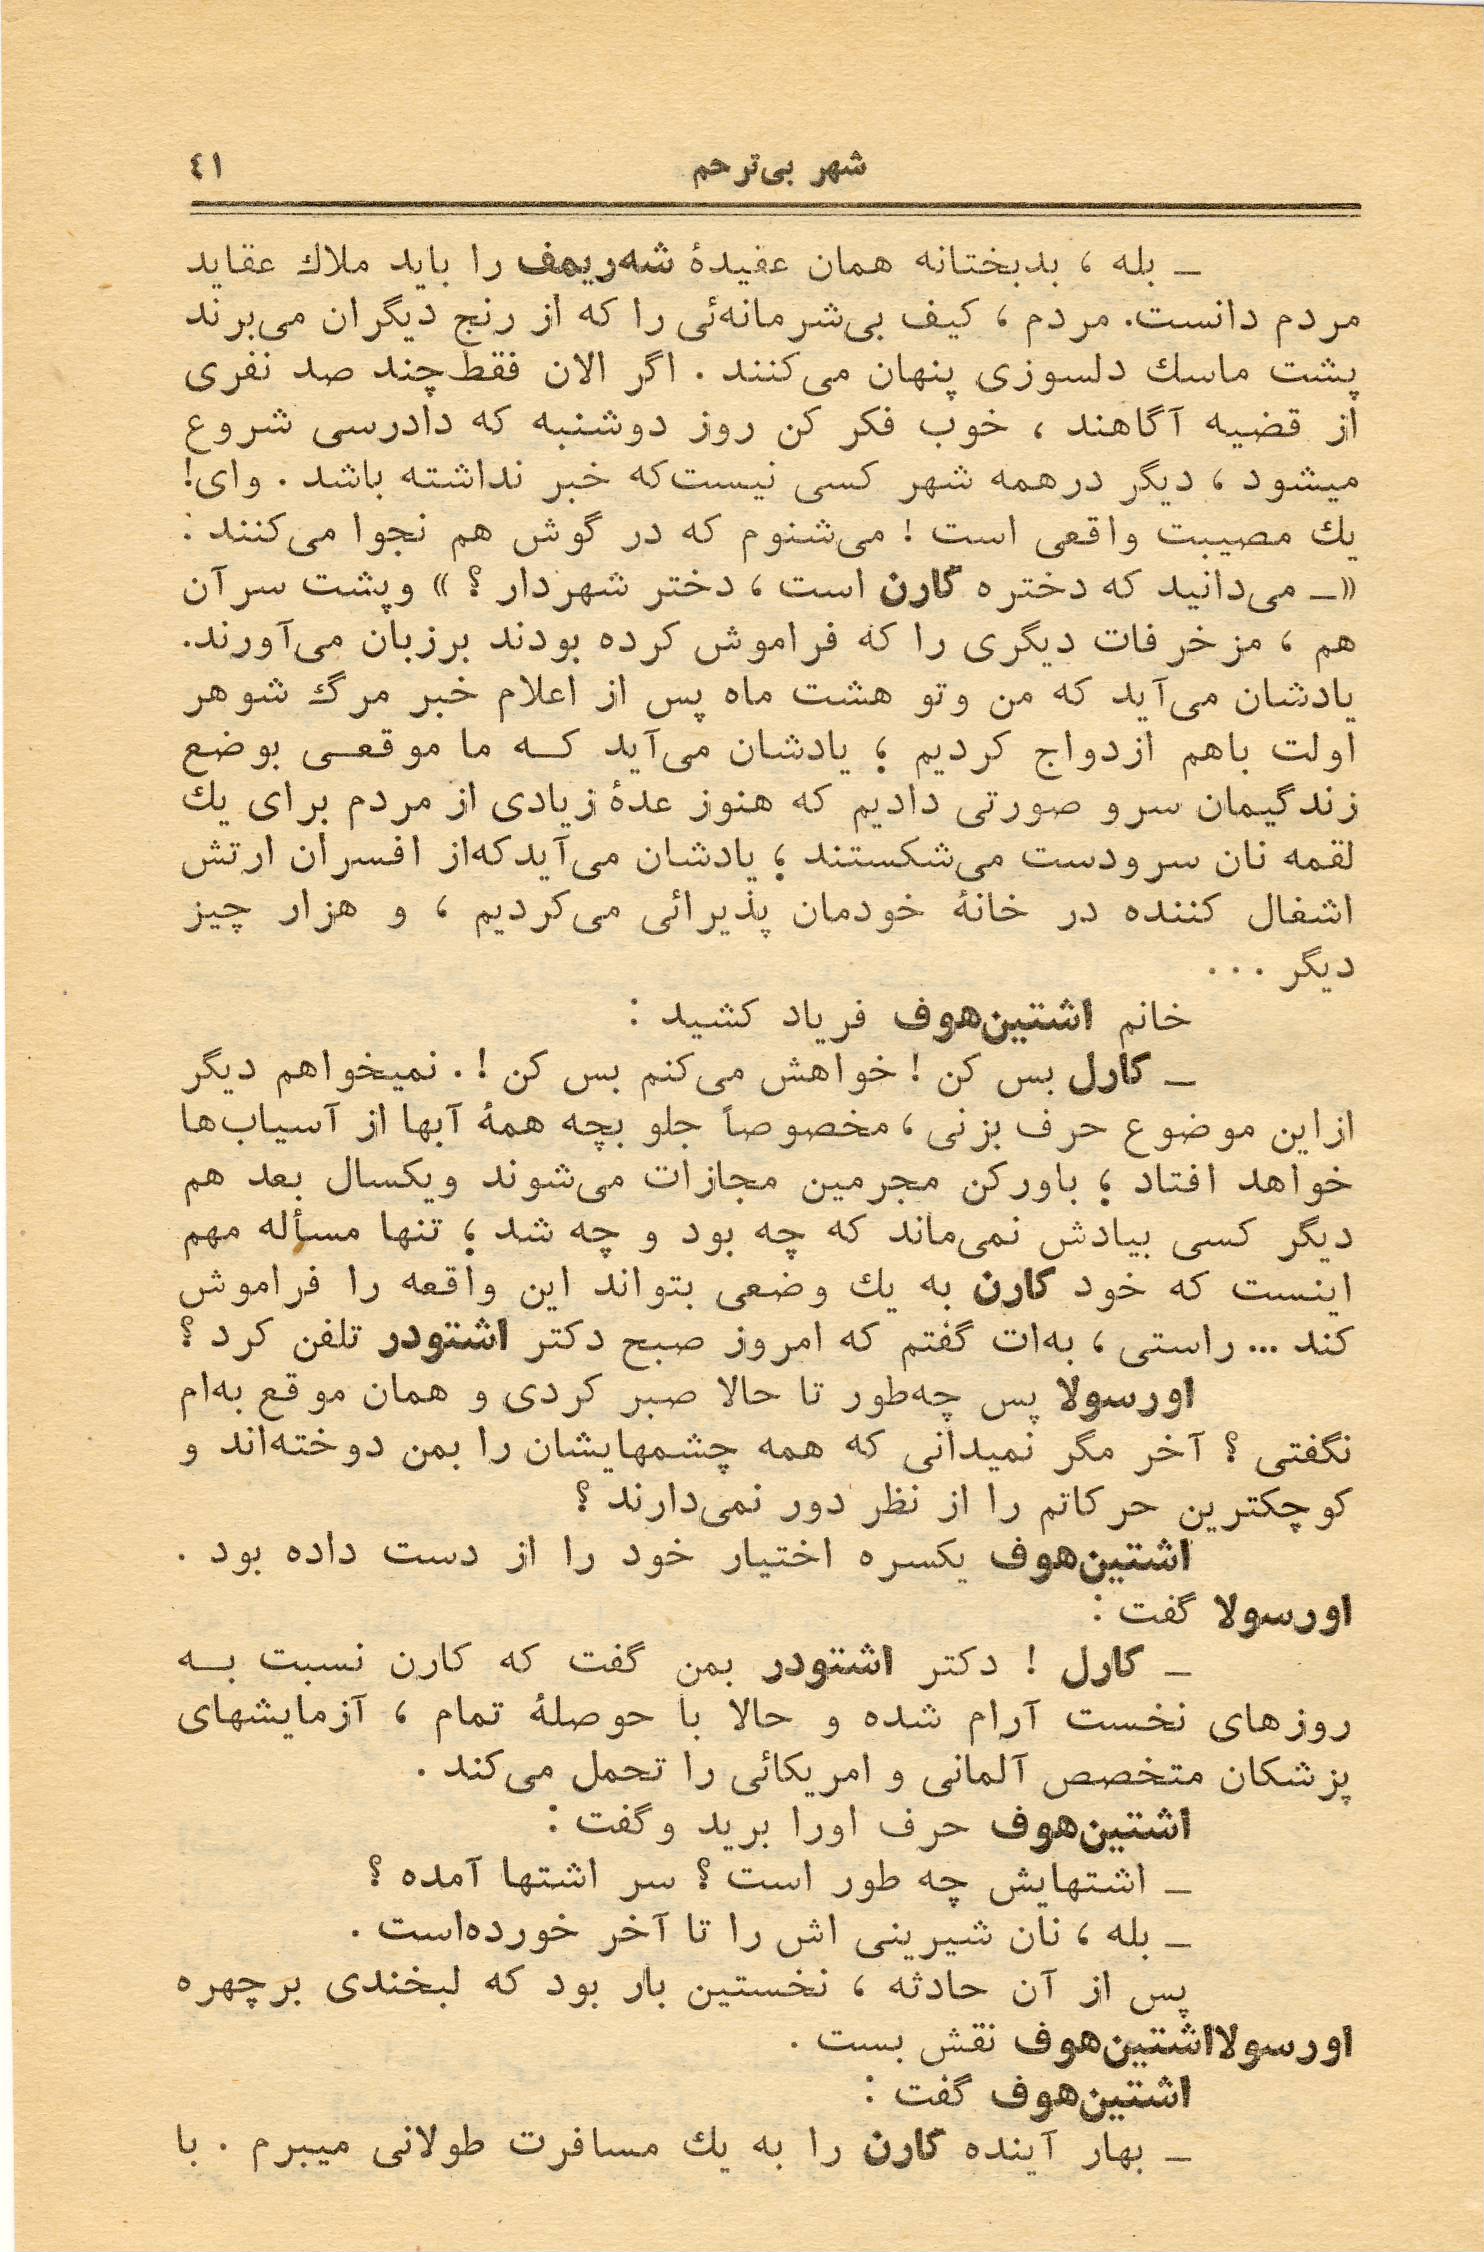 شهر بی‌ترحم ٤١
ـ بله ، بدبختانه همان عقیدهٔ شه‌ریمف را باید ملاك عقاید
مردم دانست. مردم ، کیف بی‌شرمانه‌ئی را که از رنج دیگران می‌برند
پشت ماسك دلسوزی پنهان می‌کنند . اگر الان فقط چند صد نفری
از قضیه آگاهند ، خوب فکر کن روز دوشنبه که دادرسی شروع
میشود ، دیگر درهمه شهر کسی نیست‌که خبر نداشته باشد . وای!
یك مصیبت واقعی است ! می‌شنوم که در گوش هم نجوا می‌کنند :
«ـ می‌دانید که دختره کارن است ، دختر شهردار ؟ » وپشت سرآن
هم ، مزخرفات دیگری را که فراموش کرده بودند برزبان می‌آورند.
یادشان می‌آید که من وتو هشت ماه پس از اعلام خبر مرگ شوهر
اولت باهم ازدواج کردیم ؛ یادشان می‌آید کـه ما موقعـی بوضع
زندگیمان سرو صورتی دادیم که هنوز عدهٔ زیادی از مردم برای یك
لقمه نان سرودست می‌شکستند ؛ یادشان می‌آیدکه‌از افسران ارتش
اشغال کننده در خانهٔ خودمان پذیرائی می‌کردیم ، و هزار چیز
دیگر ...
خانم اشتین‌هوف فریاد کشید :
ـ کارل بس کن ! خواهش می‌کنم بس کن !. نمیخواهم دیگر
ازاین موضوع حرف بزنی ، مخصوصاً جلو بچه همهٔ آبها از آسیاب‌ها
خواهد افتاد ؛ باورکن مجرمین مجازات می‌شوند ویکسال بعد هم
دیگر کسی بیادش نمی‌ماند که چه بود و چه شد ؛ تنها مسأله مهم
اینست که خود کارن به یك وضعی بتواند این واقعه را فراموش
کند ... راستی ، به‌ات گفتم که امروز صبح دکتر اشتودر تلفن کرد ؟
اورسولا پس چه‌طور تا حالا صبر کردی و همان موقع به‌ام
نگفتی ؟ آخر مگر نمیدانی که همه چشمهایشان را بمن دوخته‌اند و
کوچکترین حرکاتم را از نظر دور نمی‌دارند ؟
اشتین‌هوف یکسره اختیار خود را از دست داده بود .
اورسولا گفت :
ـ کارل ! دکتر اشتودر بمن گفت که کارن نسبت بـه
روزهای نخست آرام شده و حالا با حوصلهٔ تمام ، آزمایشهای
پزشکان متخصص آلمانی و امریکائی را تحمل می‌کند .
اشتین‌هوف حرف اورا برید وگفت :
ـ اشتهایش چه طور است ؟ سر اشتها آمده ؟
ـ بله ، نان شیرینی اش را تا آخر خورده‌است .
پس از آن حادثه ، نخستین بار بود که لبخندی برچهره
اورسولااشتین‌هوف نقش بست .
اشتین‌هوف گفت :
ـ بهار آینده کارن را به یك مسافرت طولانی میبرم . با